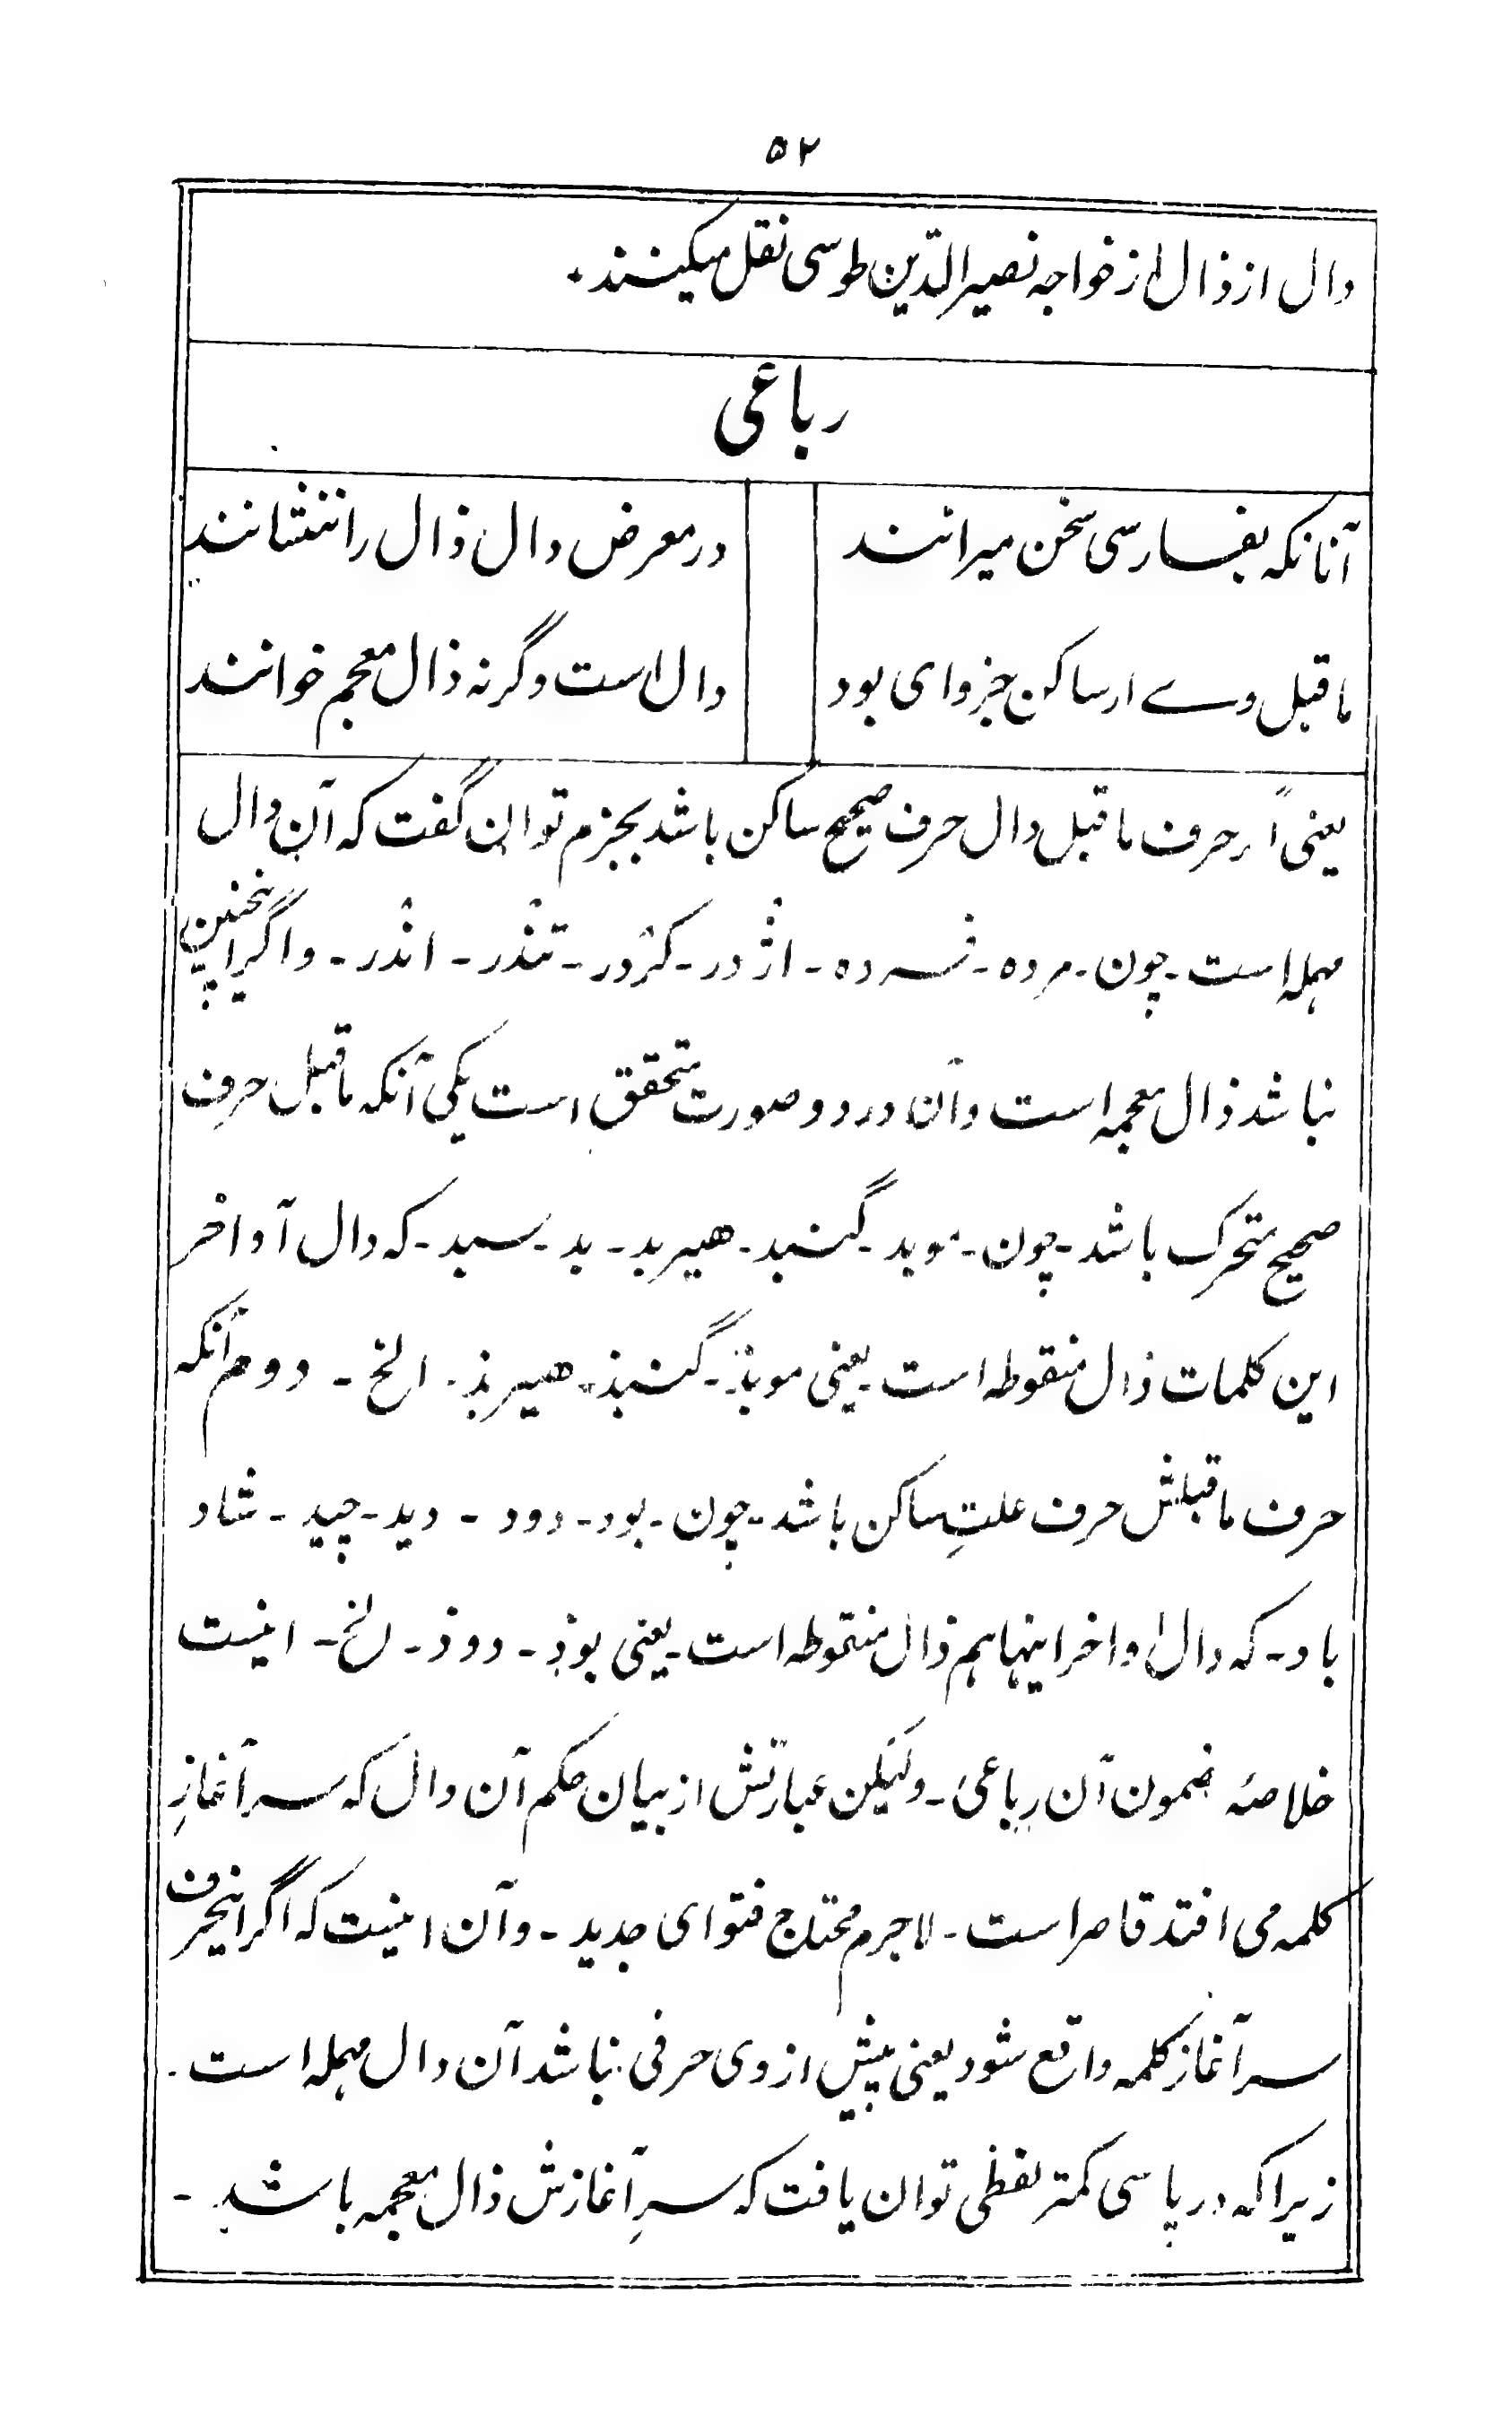 ۵۲
دال از ذال از خواجه نصیرالدّین طوسی نقل میکنند
رباعی
آنانکه بفارسی سخن میرانند
در معرض دال ذال را ننشانند
ماقبل وے ار ساکن جز وای بود
دال است وگرنه ذال معجم خوانند
یعنی ار حرف ماقبل دال حرف صحیح ساکن باشد بجزم توان گفت که آن دال
مهمله است ـ چون ـ مرده ـ فسرده ـ اژدر ـ کژدر ـ تندر ـ اندر ـ واگر اینچنین
نباشد ذال معجمه است وآن در دو صورت متحقق است یکی آنکه ماقبل حرف
صحیح متحرک باشد ـ چون ـ موبد ـ گنبد ـ هیربد ـ بد ـ سبد ـ که دال آواخر
این کلمات ذال منقوطه است ـ یعنی موبذ ـ گنبذ ـ هیربذ ـ الخ ـ دوم آنکه
حرف ماقبلش حرف علتِ ساکن باشد ـ چون ـ بود ـ دود ـ دید ـ چید ـ شاد
باد ـ که دال اواخر اینها هم ذال منقوطه است ـ یعنی بوذ ـ دوذ ـ الخ ـ اینست
خلاصهٔ مضمون آن رباعی ـ ولیکن عبارتش از بیان حکم آن دال که سرآغازِ
کلمه می افتد قاصر است ـ لاجرم محتاج فتوای جدید ـ وآن اینست که اگر اینحرف
سرآغاز کلمه واقع شود یعنی پیش از وی حرفی نباشد آن دال مهمله است ـ
زیرا که در پاسی کمتر لفظی توان یافت که سرِآغازش ذال معجمه باشد ـ